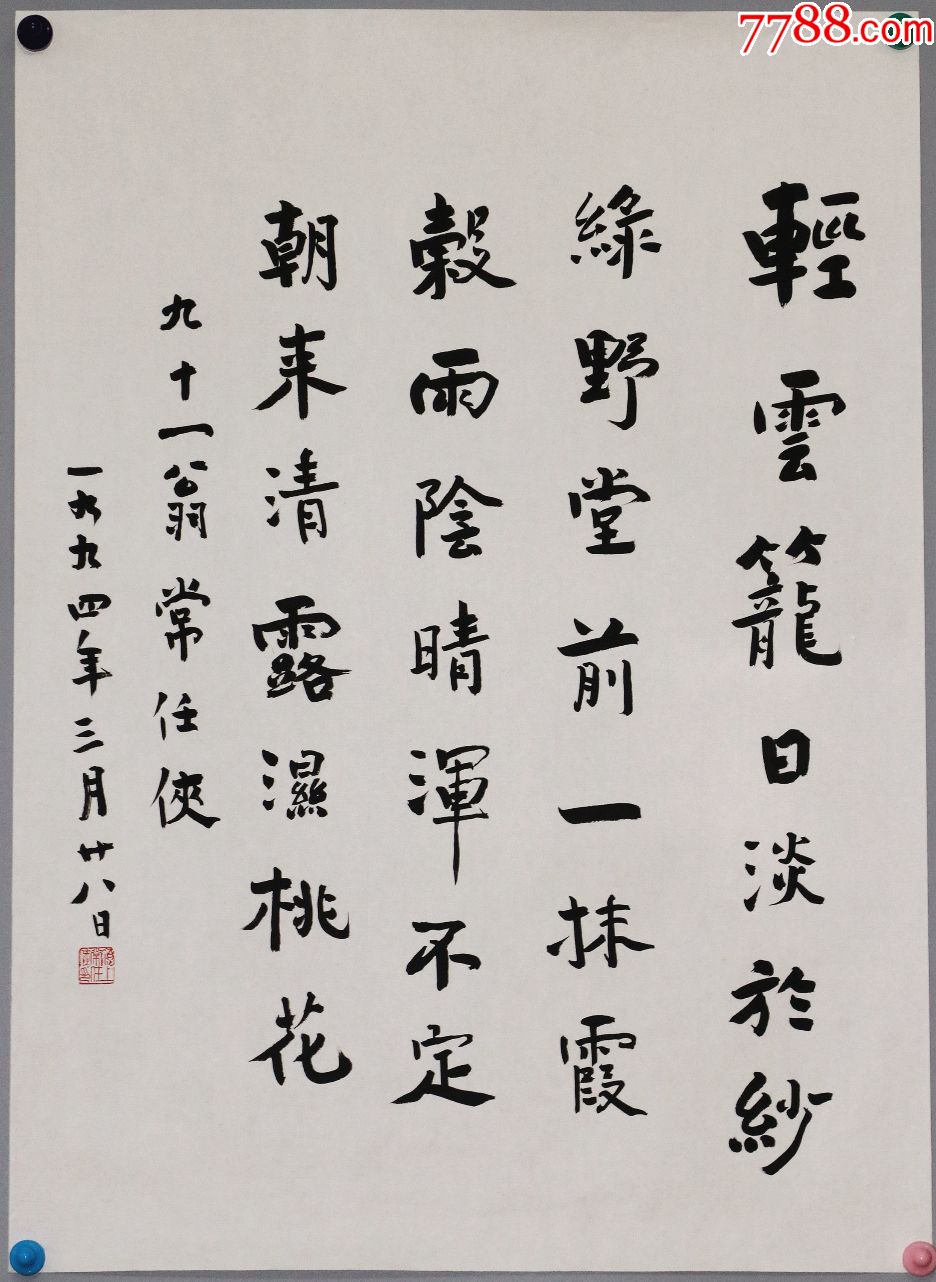 7788.com
輕雲籠日淡於紗
綠野堂前一抹霞
穀雨陰晴渾不定
朝来清露濕桃花
九十一翁常任俠
一九九四年三月廿八日